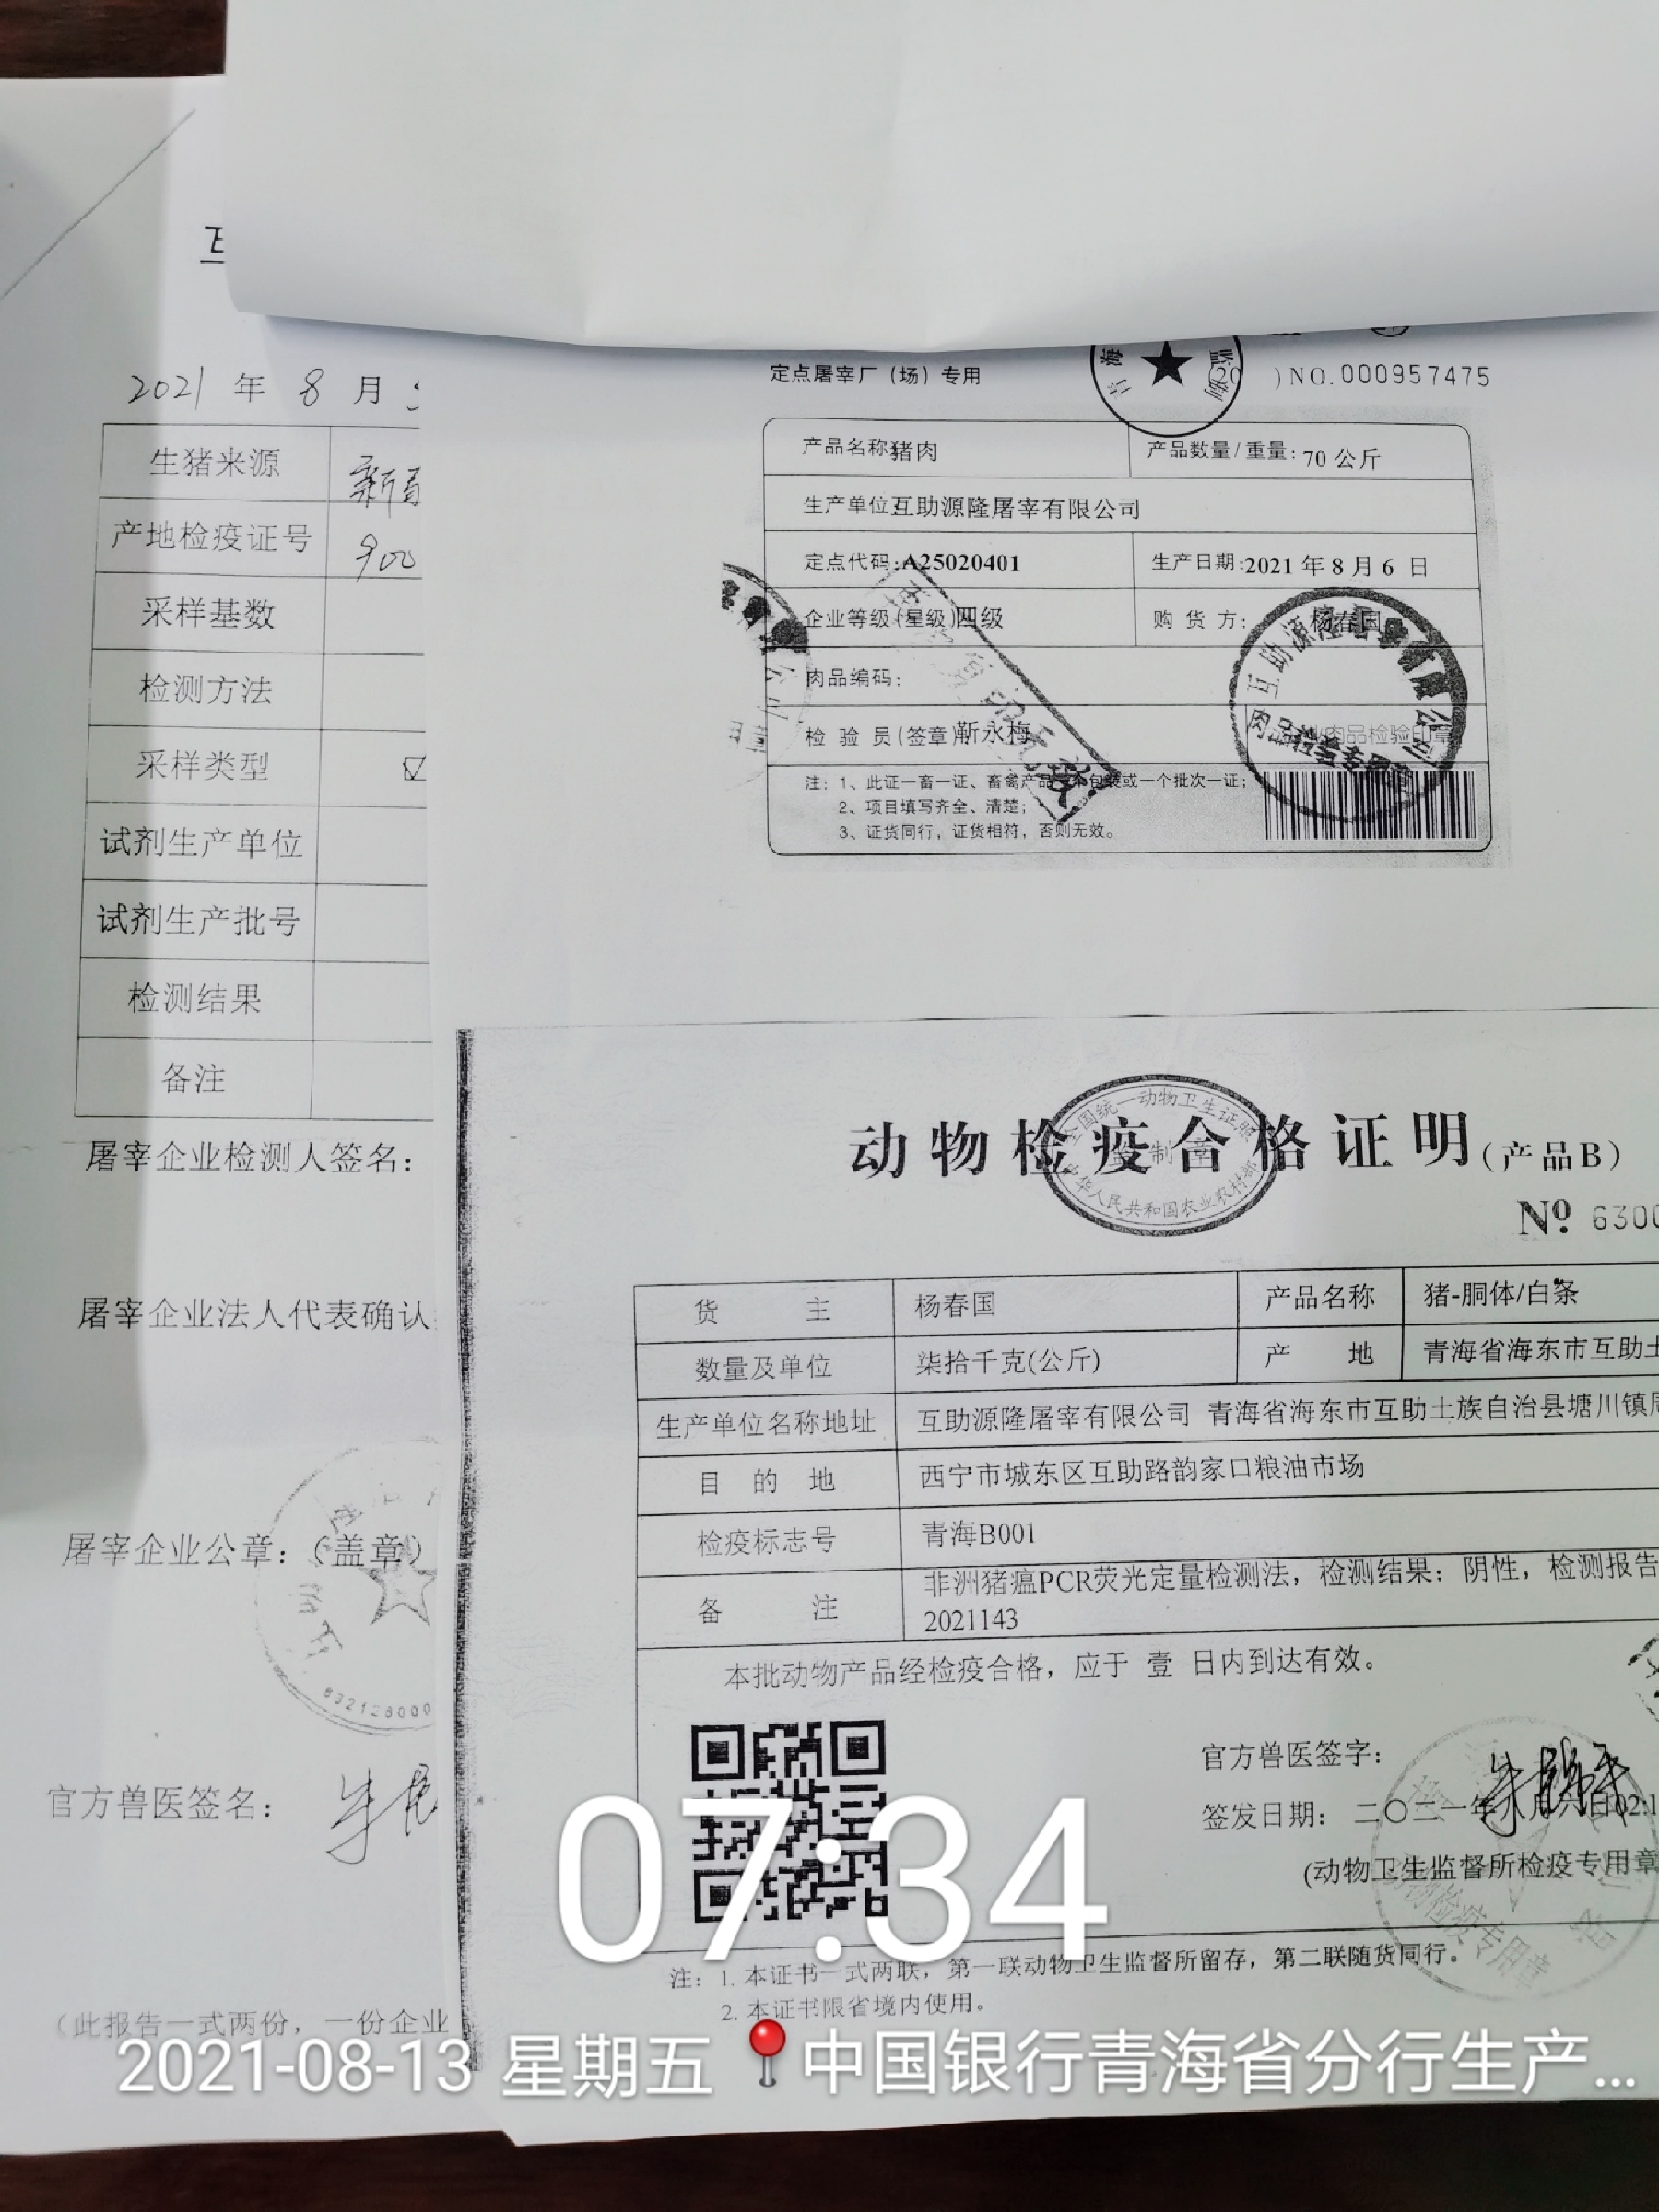 2021 年 8 月
生猪来源
产地检疫证号 900
采样基数
检测方法
采样类型 ☑
试剂生产单位
试剂生产批号
检测结果
备注
屠宰企业检测人签名：
屠宰企业法人代表确认
屠宰企业公章：（盖章）
832128000
官方兽医签名：
（此报告一式两份，一份企业
定点屠宰厂（场）专用
)NO.000957475
产品名称 猪肉 产品数量/重量：70 公斤
生产单位 互助源隆屠宰有限公司
定点代码：A25020401 生产日期：2021 年 8 月 6 日
企业等级（星级）四级 购货方：杨春国
肉品编码：
检验员（签章）靳永梅
注：1、此证一畜一证、畜禽产品一个包装或一个批次一证；
2、项目填写齐全、清楚；
3、证货同行，证货相符，否则无效。
互助源隆屠宰有限公司
肉品检验专用章
动物检疫合格证明（产品B）
全国统一动物卫生证照
监制章
中华人民共和国农业农村部
№ 6300
货主 杨春国 产品名称 猪-胴体/白条
数量及单位 柒拾千克(公斤) 产地 青海省海东市互助土
生产单位名称地址 互助源隆屠宰有限公司 青海省海东市互助土族自治县塘川镇
目的地 西宁市城东区互助路韵家口粮油市场
检疫标志号 青海B001
备注 非洲猪瘟PCR荧光定量检测法，检测结果：阴性，检测报告
2021143
本批动物产品经检疫合格，应于 壹 日内到达有效。
官方兽医签字：
签发日期：二〇二一年
(动物卫生监督所检疫专用章
注：1. 本证书一式两联，第一联动物卫生监督所留存，第二联随货同行。
2. 本证书限省境内使用。
07:34
2021-08-13 星期五 中国银行青海省分行生产...